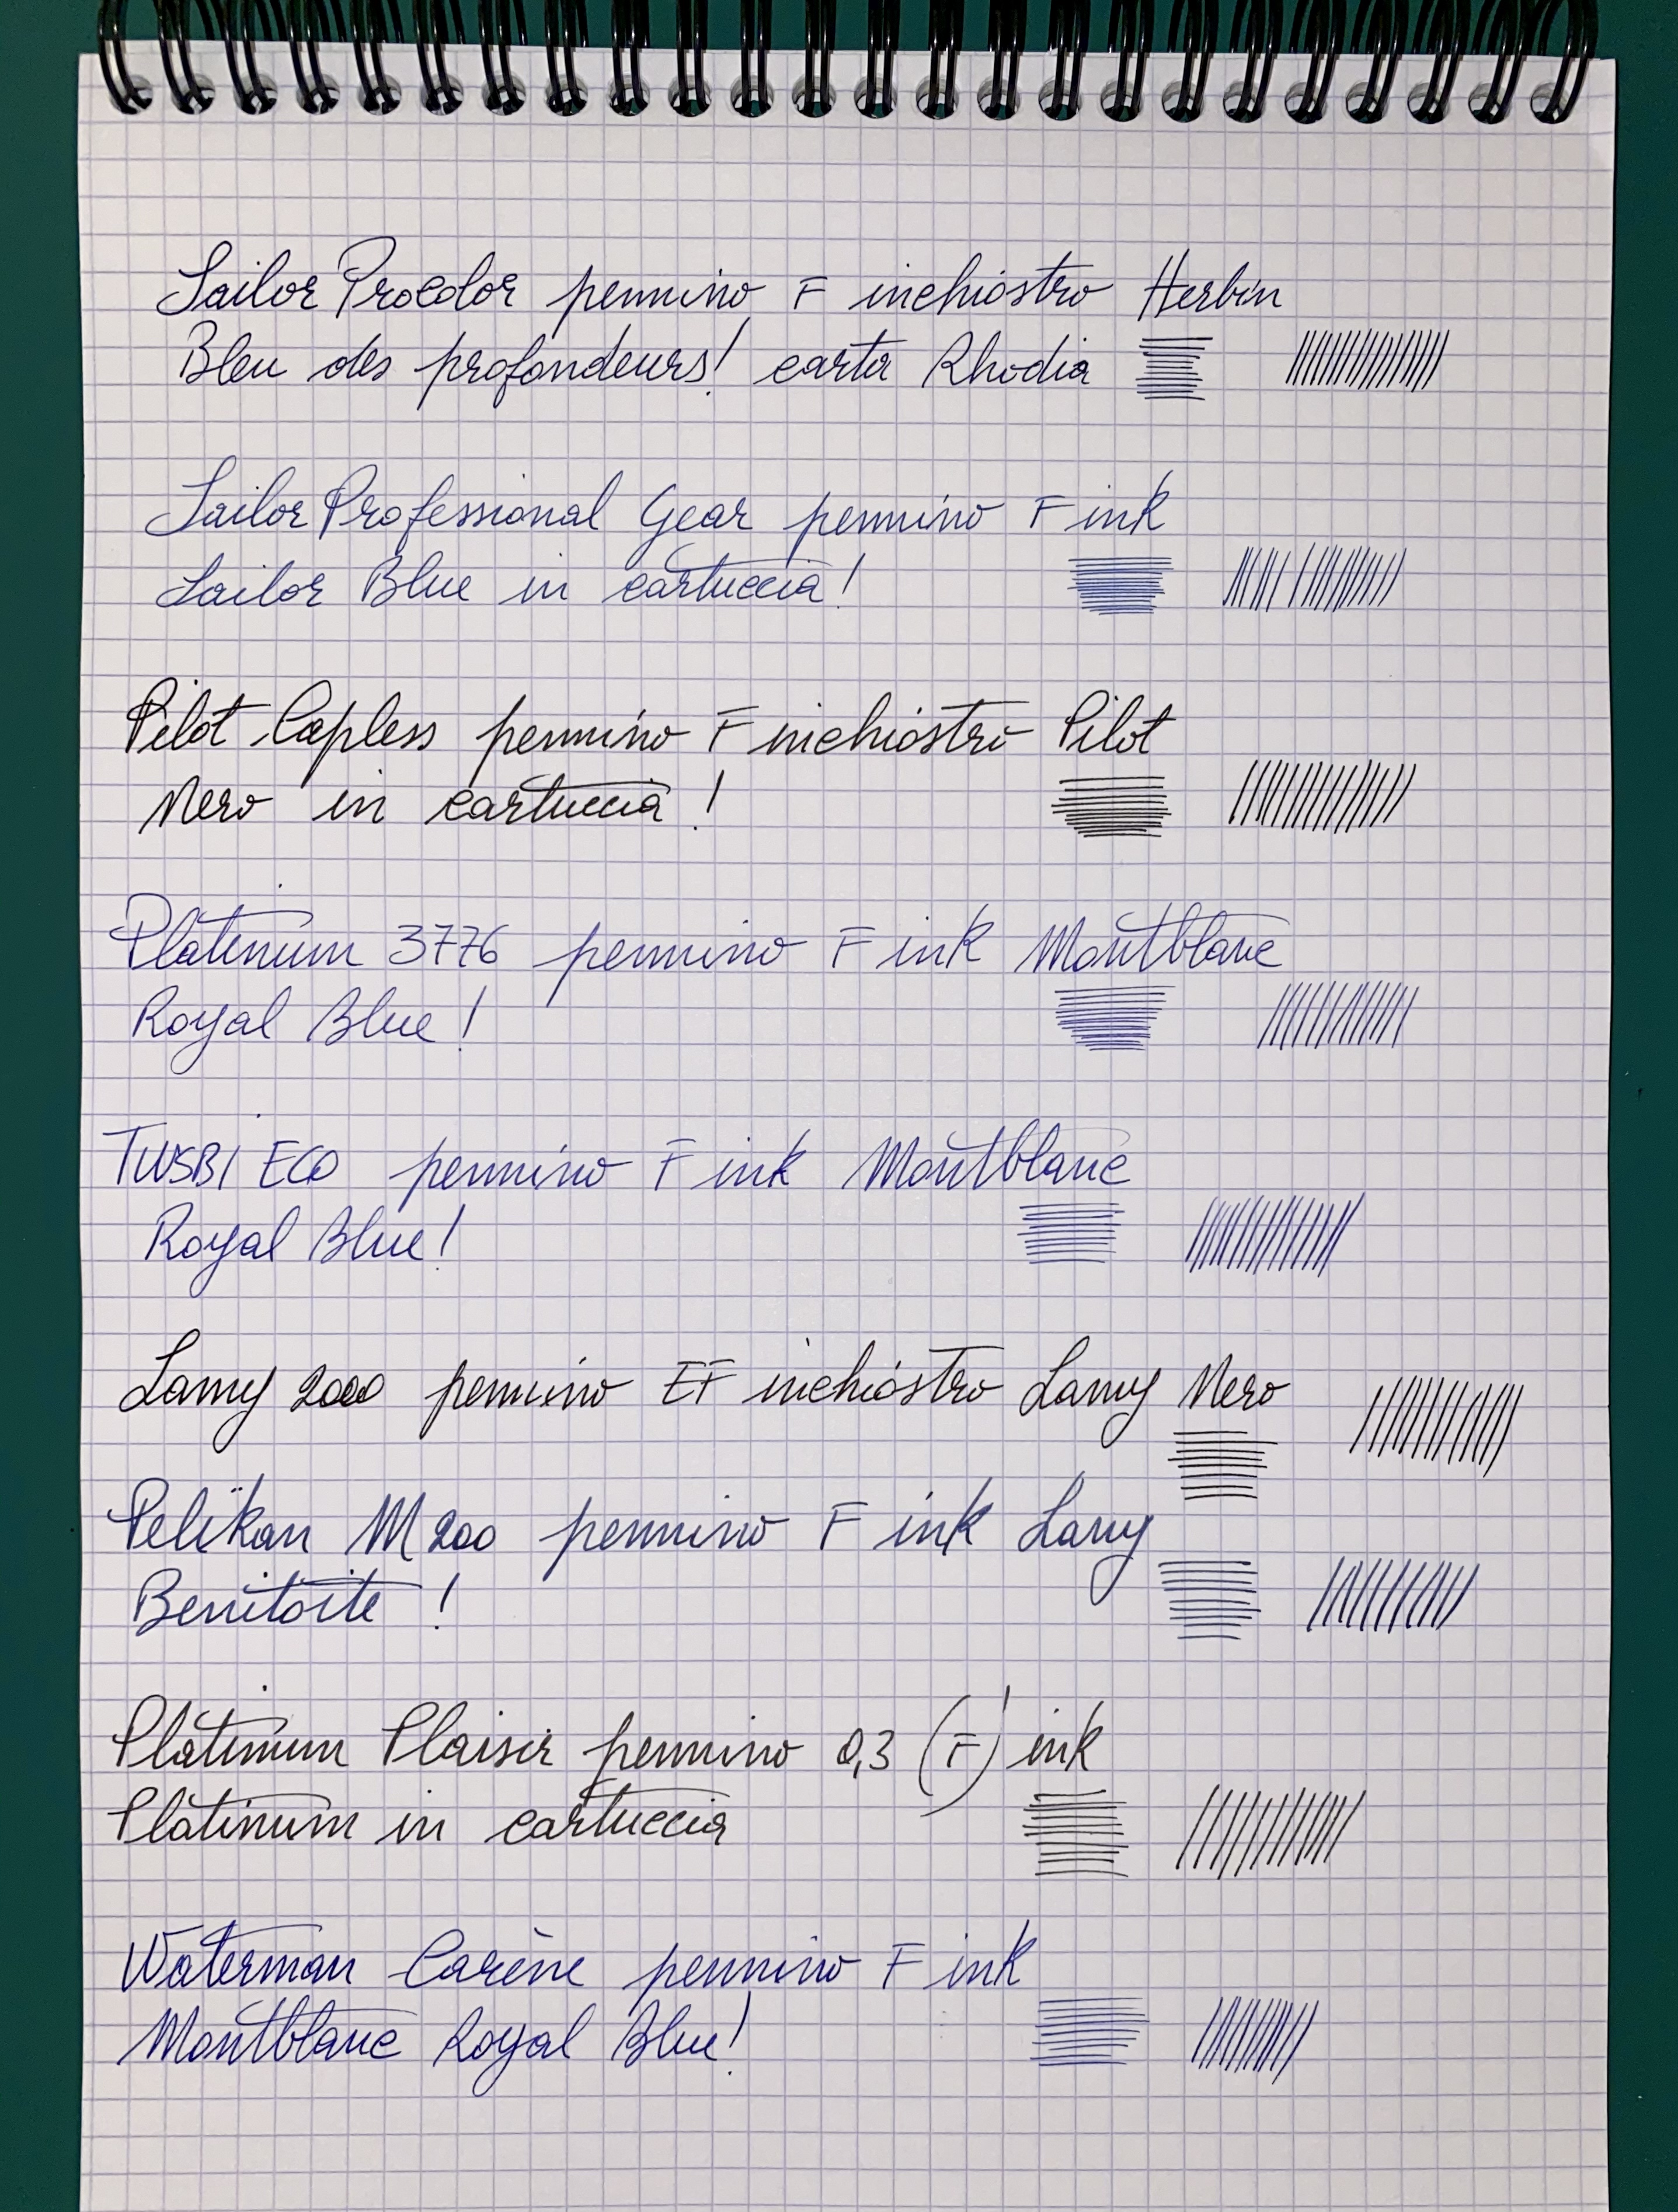 Sailor Procolor pennino F inchiostro Herbin
Bleu des profondeurs! carta Rhodia
Sailor Professional Gear pennino F ink
Sailor Blue in cartuccia!
Pilot Capless pennino F inchiostro Pilot
Nero in cartuccia!
Platinum 3776 pennino F ink Montblanc
Royal Blue!
TWSBI ECO pennino F ink Montblanc
Royal Blue!
Lamy 2000 pennino EF inchiostro Lamy Nero
Pelikan M200 pennino F ink Lamy
Benitoite!
Platinum Plaisir pennino 0,3 (F) ink
Platinum in cartuccia
Waterman Carène pennino F ink
Montblanc Royal Blue!